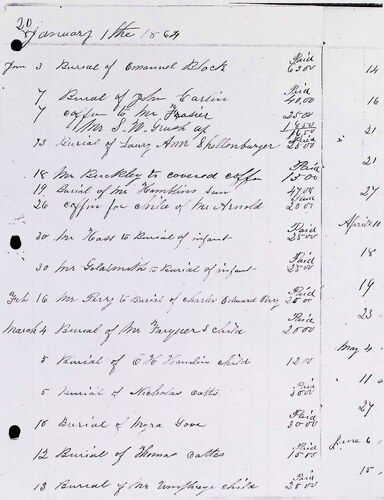 20
January 1 the 1864
Jan 3 Burial of Emanuel Block Paid 63 00
7 Burial of John Carlin Paid 40 00
7 coffin to Mr Frasier 25 00
Mr S. W. 18 50
13 Burial of Laury Ann Shellenburger Paid
18 Mr Buckley to covered coffin Paid 15 00
19 Burial of Mr Hamblins sun 47 00
26 coffin for child of Mr Arnold Paid 20 00
30 Mr Hass to Burial of infant Paid 25 00
30 Mr Goldsmith to Burial of infant Paid 25 00
Feb 16 Mr Perry to Burial of Charles Edward Perry Paid 25 00
March 4 Burial of Mr child Paid 20 00
5 Burial of E H Hamlin child 12 00
5 Burial of Nicholas Catts Paid 30 00
10 Burial of Myra Gove Paid 30 00
12 Burial of Thomas Cattes Paid 15 00
13 Burial of Mr Umphreys child Paid 25 00
14
16
21
21
27
April 10
18
19
23
May 4
" 11
27
June 6
15